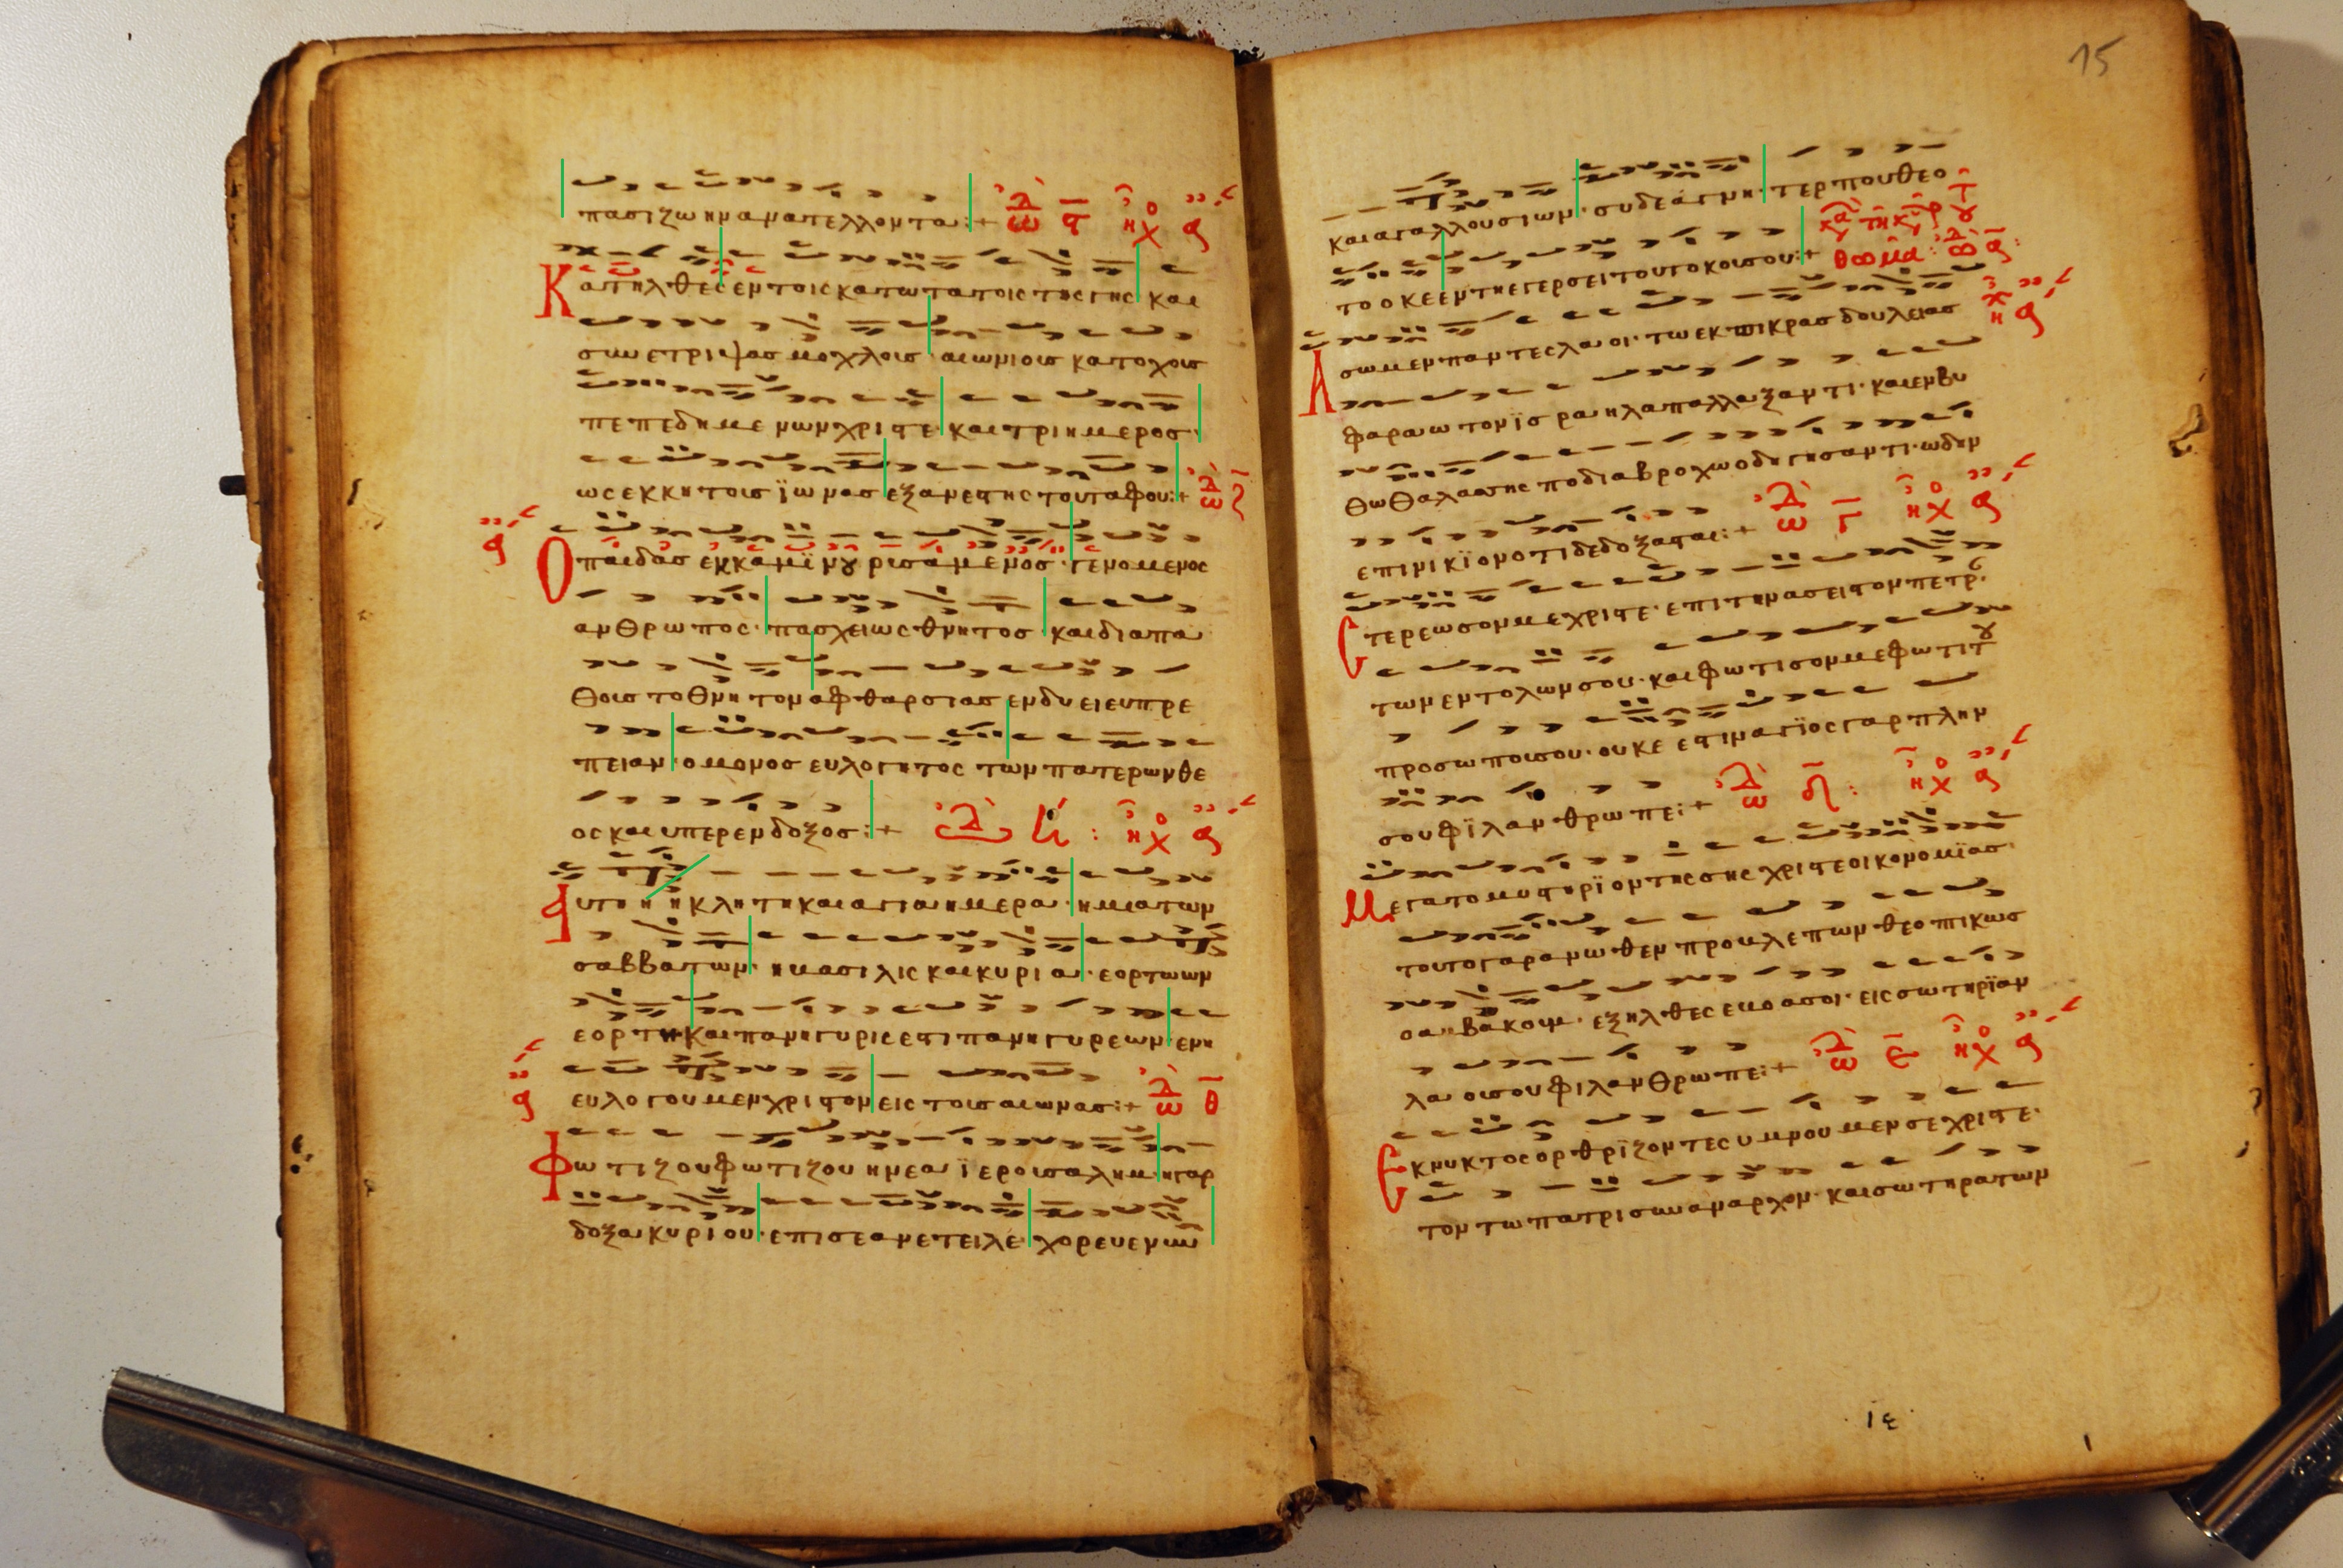 πασι ζωην ανατελλοντα:+ ωδ ϛ ηχος α
Κατηλθες εν τοις κατωτατοις της γης και
συνετριψας μοχλους· αιωνιους κατοχους
πεπεδημενων χριστε· και τριημερος·
ως εκ κητους ϊωνας εξανεστης του ταφου:+ ωδ ζ
Ο παιδας εκ καμϊνου ρυσαμενος· γενομενος
ανθρωπος· πασχει ως θνητος· και δια πα
θους το θνητον αφθαρσιας ενδυει ευπρε
πειαν· ο μονος ευλογητος των πατερων θε
ος και υπερενδοξος:+ ωδ η: ηχος α
Αυτη η κλητη και αγια ημερα· η μια των
σαββατων· η βασιλις και κυρια· εορτων
εορτη και πανηγυρις εστι πανηγυρεων· εν η
ευλογουμεν χριστον εις τους αιωνας:+ ωδ θ
Φωτιζου φωτιζου η νεα ϊερουσαλημ· η γαρ
δοξα κυριου· επι σε ανετειλε· χορευε νυν
15
και αγαλλου σιων· συ δε αγνη· τερπου θεο
τοκε εν τη εγερσει του τοκου σου:+
θωμα: ωδ α:
Ασωμεν παντες λαοι· τω εκ πικρας δουλειας
φαραω τον ϊσραηλ απαλλαξαντι· και εν βυ
θω θαλασσης ποδι αβροχω οδηγησαντι· ωδην
επινικϊον οτι δεδοξασται:+ ωδ γ ηχος α
Στερεωσον με χριστε· επι την ασειστον πετρ·
των εντολων σου· και φωτισον με φωτι τ
προσωπου σου· ου κ εστιν αγϊος γαρ πλην
σου φϊλανθρωπε:+ ωδ δ: ηχος α
Μεγα το μυστηρϊον της σης χριστε οικονομϊας·
τουτο γαρ ανωθεν προβλεπων θεοπτικως
ο αμβακουμ· εξηλθες εβοα σοι· εις σωτηρϊαν
λαου σου φιλανθρωπε:+ ωδ ε ηχος α
Εκ νυκτος ορθρϊζοντες υμνουμεν σε χριστε·
τον τω πατρι συναναρχον· και σωτηρα των
ιε